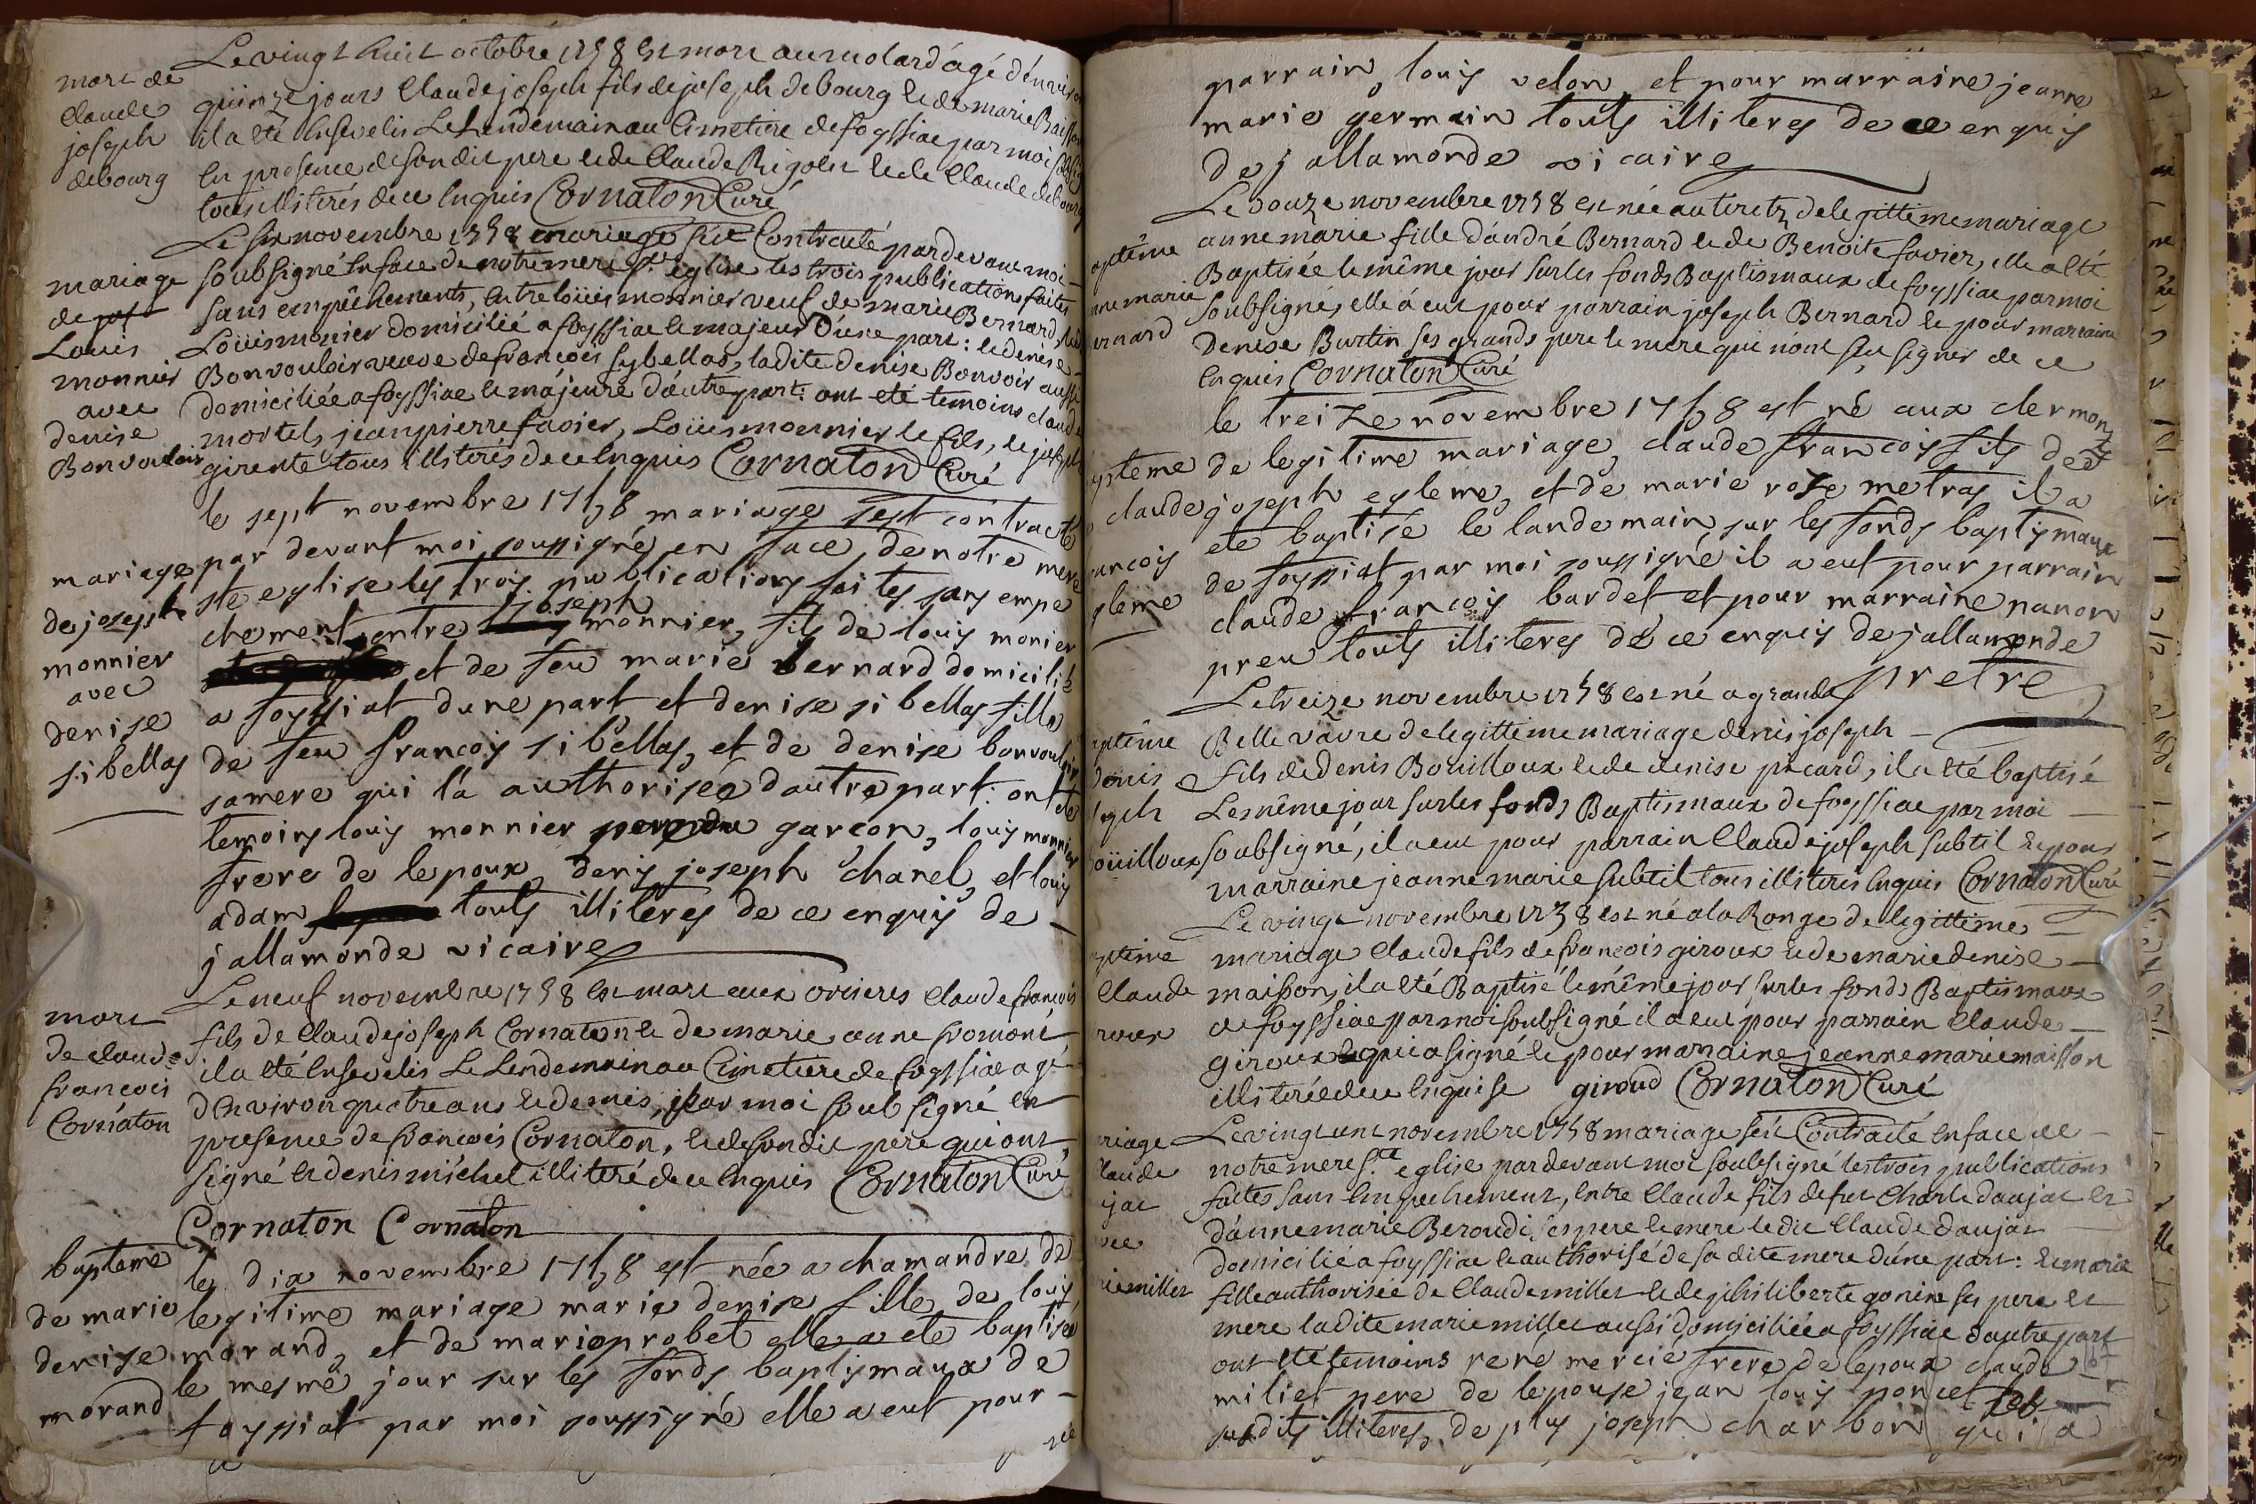 Le vingt huit octobre 1758 est mort au molard ágé d'environ
mort de
claude
joseph
debourg
quinze jours Claude joseph fils de joseph debourg et de marie
il a eté Ensevelis Le Lendemain au Cimetiere de foyssiac par moi
En presence de son dit pere et de Claude Rigolet et de Claude debourg
tous illiterés de ce Enquis Cornaton Curé
Le six novembre 1758 mariage fut Contracté pardevant moi
mariage
de
Louis
monnier
avec
denise
Bonvouloir
soubsigné En face de notre mere Ste eglise les trois publications faites
sans empêchements, Entre loüis monnier veuf de marie Bernard, ledit
Loüis monier domicilié a foyssiac le majeur D'une part: et denise
Bonvouloir veuve de francois sybellas, la dite denise Bonvoir aussi
domiciliée a foyssiac le majeure d'autre part: ont eté temoins claude
mortel, jean pierre favier, Loüis monnier le fils, et joseph
girente tous illiterés de ce Enquis Cornaton Curé
le sept novembre 1758 mariage sest contracté
mariage
de joseph
monnier
avec
denise
sibellas
par devant moi soussigné en face de notre mere
ste eglise les trois publications faites sans empe
chement entre joseph monnier, fils de louis monier
et de feu marie bernard domicilié
a foyssiat dune part et denise sibellas fille
de feu francois sibellas, et de denise bonvouloir
sa mere qui l'a authorisée dautre part: ont été
temoins louis monnier garcon, louis monnier
frere de lepoux, denis joseph chanel, et louis
adam touts illiteres de ce enquis de
jallamonde vicaire
Le neuf novembre 1758 Est mort aux orcieres Claude francois
mort
de claude
francois
Cornáton
fils de Claude joseph Cornaton et de marie anne
il a eté Ensevelis Le Lendemain au Cimetiere de foyssiac agé
d'Environ quatre ans et demis, par moi soubsigné en
presence de francois Cornaton, et de son dit pére qui ont
signé et denis michel illiteré de ce Enquis Cornaton Curé
Cornaton Cornaton
bapteme
de marie
denise
morand
le dix novembre 1758 est née a chamandre de
legitime mariage marie denise fille de louis
morand, et de marie probet elle a eté baptisée
le mesme jour sur les fonds baptismaux de
foyssiat par moi soussigné elle a eut pour
parrain louis velon, et pour marraine jeanne
marie germain touts illiteres de ce enquis
de jallamonde vicaire
Le douze novembre 1758 est née au tiretz de legittime mariage
aptême
nne marie
ernard
anne marie fille d'andré Bernard et de Benoite favier, elle a eté
Baptisée le même jour sur les fonds Baptismaux de foyssiac par moi
soubsigné, elle á eut pour parrain joseph Bernard et pour marraine
Denise Burtin ses grands pere et mere qui n'ont sçu signer de ce
Enquis Cornaton Curé
le treize novembre 1758 est né aux clermonts
aptéme
claude
rancois
gleme
de legitime mariage, claude francois fils de
joseph egleme, et de marie roze metras il a
ete baptise le landemain sur les fonds baptismaux
de foyssiat par moi soussigné il a eut pour parrain
claude francois bardet et pour marraine nanon
preu touts illiteres de ce enquis de jallamonde
pretre
Le treize novembre 1758 est né a grande
aptême
Denis
seph
oüilloux
Belle vávre de legittime mariage denis joseph
fils de denis Bouilloux et de denise picard, il a eté baptisé
Le même jour sur les fonds Baptismaux de foyssiac par moi
soubsigné, il a eut pour parrain Claude joseph subtil et pour
marraine jeanne marie subtil tous illiterés Enquis Cornaton Curé
Le vingt novembre 1758 est né a la Ronge de legittime
aptême
Claude
roux
mariage Claude fils de francois giroux et de marie denise
maisson, il a eté Baptisé le même jour sur les fonds Baptismaux
de foyssiac par moi soubsigné il a eut pour parrain Claude
giroux qui a signé et pour marraine jeanne marie maisson
illiterée de ce Enquise giroud Cornaton Curé
Le vingt un novembre 1758 mariage fut Contracté En face de
riage
laude
jat
vec
rie millet
notre mere Ste eglise pardevant moi soubsigné les trois publications
faites sans Empechement, Entre Claude fils de fut Charle daujat et
d'anne marie Beroudi ses pere et mere ledit Claude daujat
domicilié a foyssiac et authorisé de sa dite mere d'une part: et marie
fille authorisée de Claude millet et de philiberte gonin ses pere et
mere la dite marie millet aussi domiciliée a foyssiac d'autre part
ont eté temoins rené mercie frere de lepoux claude
miliet pere de lepouse jean louis poncet
susdits illiteres, de plus joseph charbon qui a